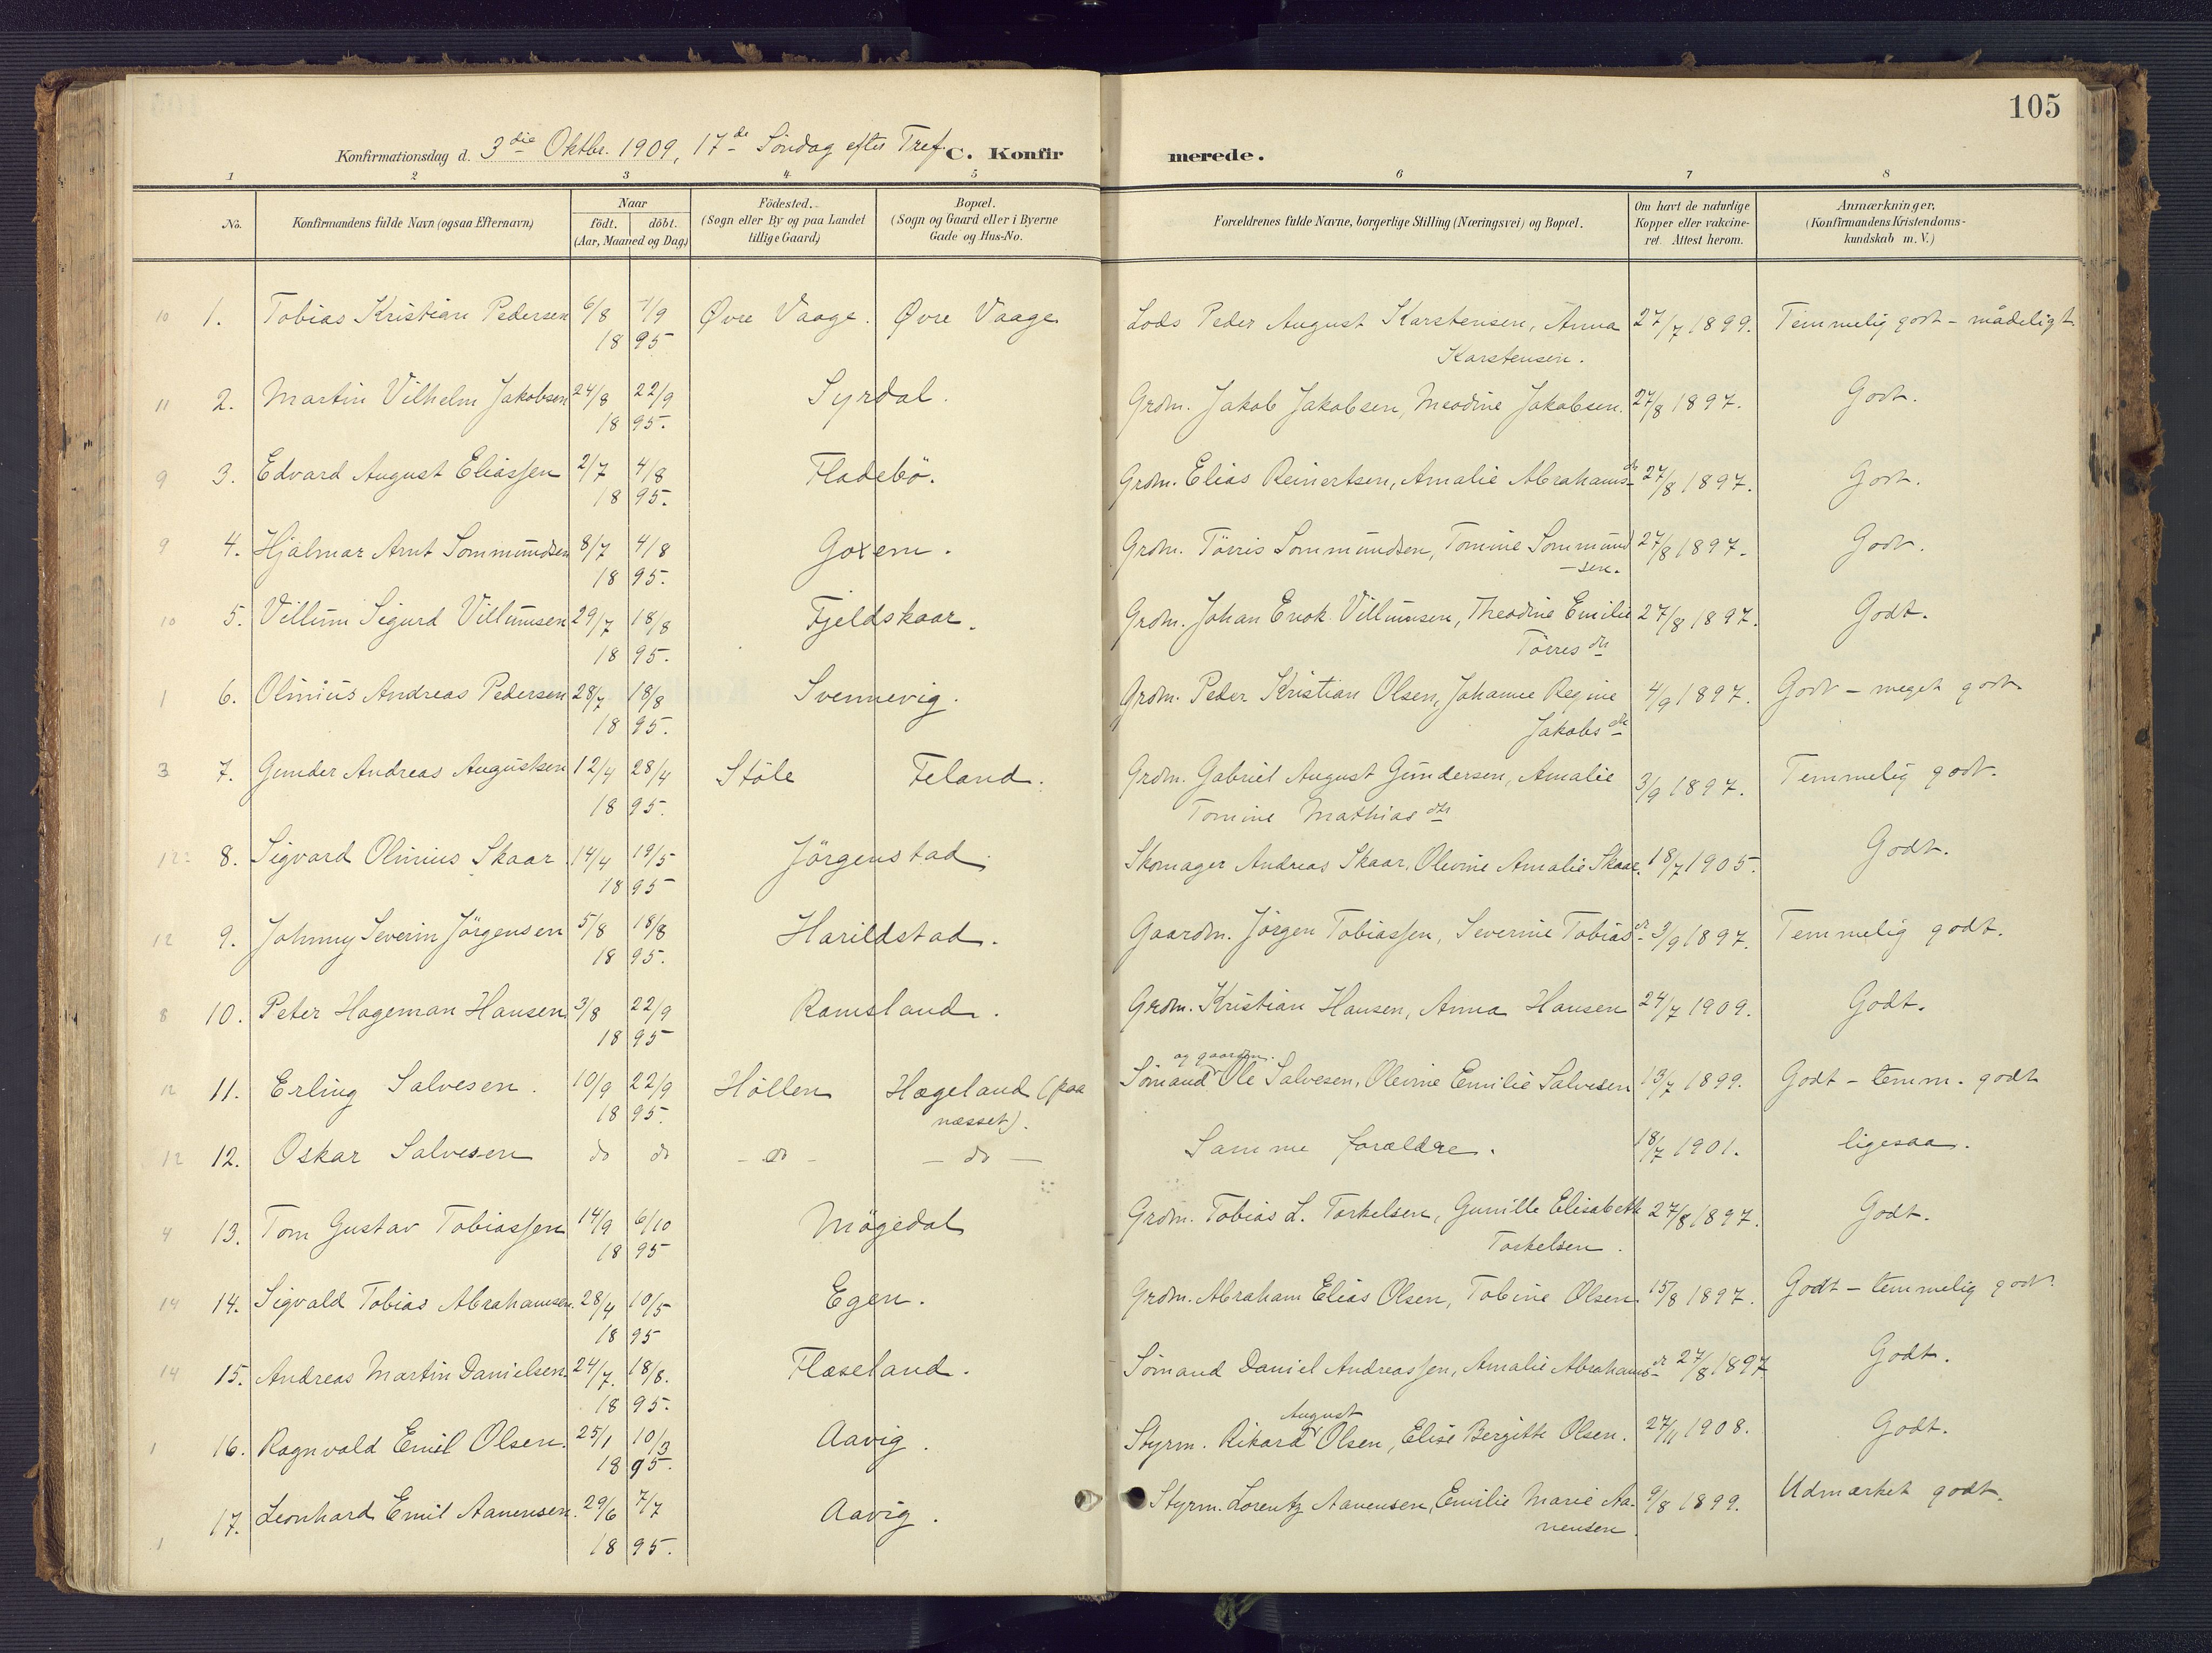 105
Konfirmationsdag d. 3die Oktbr. 1909, 17de Söndag efter Tref. C. Konfirmerede.
1 2 3 4 5 6 7 8
No. Konfirmandens fulde Navn (ogsaa Efternavn) Naar födt. döbt. (Aar, Maaned og Dag) Födested. (Sogn eller By og paa Landet tillige Gaard) Bopæl. (Sogn og Gaard eller i Byerne Gade og Hus-No. Forældrenes fulde Navne, borgerlige Stilling (Næringsvei) og Bopæl. Om havt de naturlige Kopper eller vakcineret. Attest herom. Anmærkninger. (Konfirmandens Kristendomskundskab m. V.)
10 1. Tobias Kristian Pedersen 6/8 1/9 Øvre Vaage. Øvre Vaage Lods Peder August Karstensen, Anna 27/7 1899. Temmelig godt - mådeligt
18 95 Karstensen.
11 2. Martin Vilhelm Jakobsen 24/8 22/9 Syrdal. Grdm. Jakob Jakobsen, Meodine Jakobsen. 27/8 1897. Godt.
18 95.
9 3. Edvard August Eliassen 2/7 4/8 Fladebö. Grdm. Elias Reinertsen, Amalie Abrahamsdr 27/8 1897. Godt.
18 95.
9 4. Hjalmar Arnt Sommundsen 8/7 4/8 Goxem. Grdm. Törris Sommundsen, Tomine Sommund 27/8 1897. Godt.
18 95. -sen.
10 5. Villum Sigurd Villumsen 29/7 18/8 Fjeldskaar. Grdm. Johan Enok Villumsen, Theodine Emilie 27/8 1897. Godt.
18 95. Törresdtr
1 6. Olinius Andreas Pedersen 28/7 18/8 Svennevig. Grdm. Peder Kristian Olsen, Johanne Regine 4/9 1897. Godt - meget godt
18 95. Jakobsdtr
3 7. Gunder Andreas Augustsen 12/4 28/4 Stöle Feland. Grdm. Gabriel August Gundersen, Amalie 3/9 1897. Temmelig godt.
18 95. Tomine Mathiasdtr
12 8. Sigvard Olinius Skaar 14/4 19/5 Jörgenstad. Skomager Andreas Skaar, Olevine Amalie Skaar. 18/7 1905. Godt.
18 95
12 9. Johnny Severin Jörgensen 5/8 18/8 Harildstad. Gaardm. Jörgen Tobiassen, Severine Tobiasdr 3/9 1897. Temmelig godt.
18 95.
8 10. Peter Hageman Hansen 3/8 22/9 Ramsland. Grdm. Kristian Hansen, Anna Hansen 24/7 1909. Godt.
18 95
og gaardm.
12 11. Erling Salvesen. 10/9 22/9 Höllen Hægeland (paa Sömand Ole Salvesen, Olevine Emilie Salvesen 13/7 1899. Godt - temm. godt
18 95. næsset).
12 12. Oskar Salvesen do do - do - - do - Samme forældre. 18/7 1901. ligesaa.
4 13. Tom Gustav Tobiassen 14/9 6/10 Mögedal Grdm. Tobias L. Torkelsen, Gunille Elisabeth 27/8 1897. Godt.
18 95 Torkelsen.
14 14. Sigvald Tobias Abrahamsen. 28/4 10/5 Egen. Grdm. Abraham Elias Olsen, Tobine Olsen. 15/8 1897. Godt - temmelig godt
18 95
14 15. Andreas Martin Danielsen. 24/7. 18/8. Flaseland. Sömand Daniel Andreassen, Amalie Abrahamsdr 27/8 1897 Godt.
18 95.
August
1 16. Ragnvald Emil Olsen. 25/1 10/3 Aavig. Styrm. Rikard Olsen, Elise Bergitte Olsen. 27/11 1908. Godt.
18 95.
1 17. Leonhard Emil Aanensen. 29/6 7/7 Aavig. Styrm. Lorentz Aanensen, Emilie Marie Aa- 9/8 1899. Udmærket godt.
18 95. nensen.